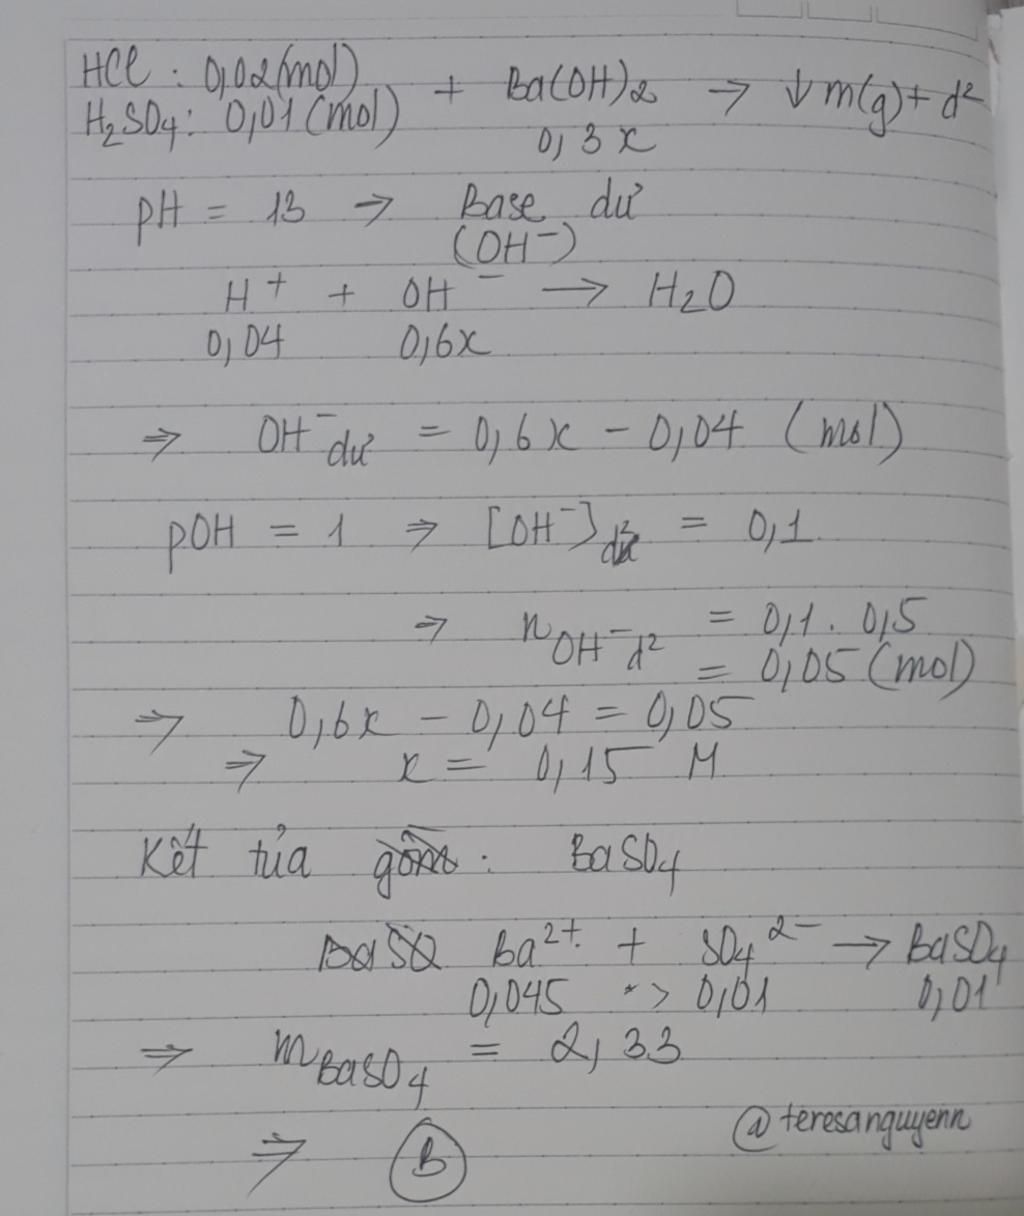 HCl : 0,02(mol)
H₂SO₄ : 0,01 (mol) + Ba(OH)₂ → ↓ m(g) + d²
0,3x
pH = 13 → Base dư
(OH⁻)
H⁺ + OH⁻ → H₂O
0,04 0,6x
⇒ OH⁻ dư = 0,6x - 0,04 (mol)
pOH = 1 ⇒ [OH⁻] = 0,1
⇒ nOH⁻ d² = 0,1 . 0,5
= 0,05 (mol)
⇒ 0,6x - 0,04 = 0,05
⇒ x = 0,15 M
Kết tủa gồm : BaSO₄
BaSO Ba²⁺ + SO₄²⁻ → BaSO₄
0,045 > 0,01 0,01
⇒ mBaSO₄ = 2,33
⇒ B
@teresanguyenn